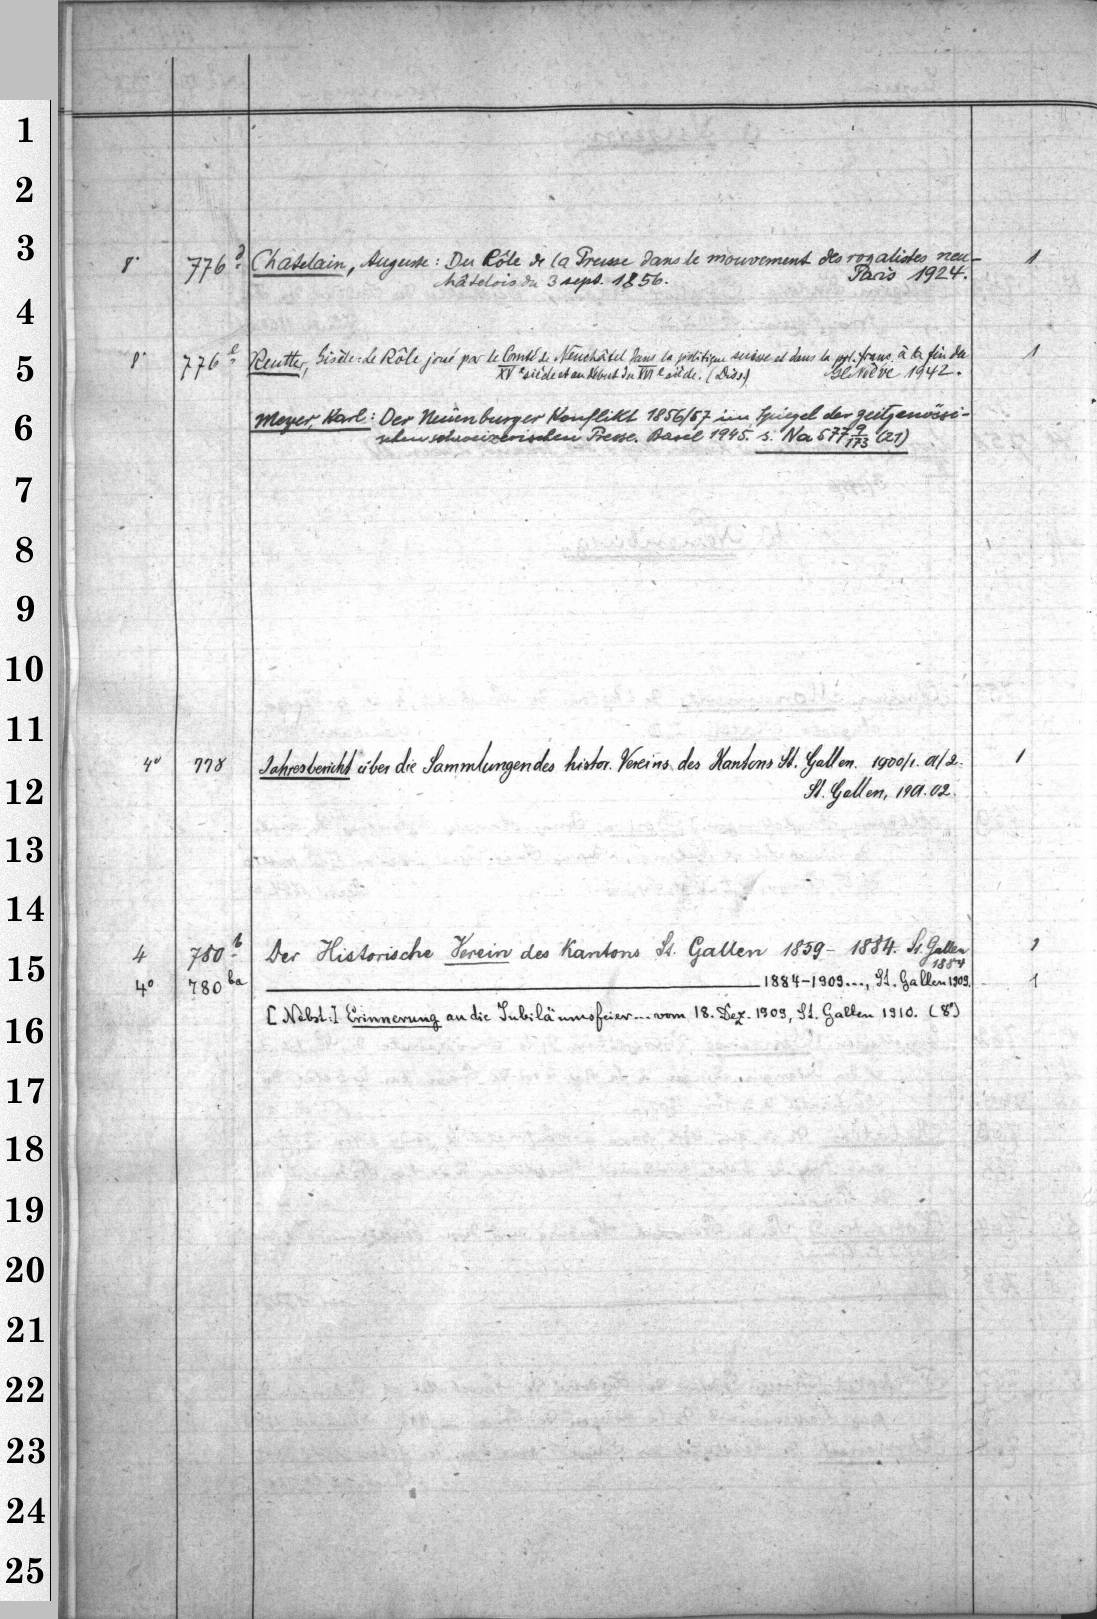 1
2
3
8° 776d Chatelain, Auguste: Du Rôle de la Prusse dans le mouvement des royalistes neu- 1
châtelois du 3 sept. 1856. Paris 1924.
4
5
8° 776e Reutter, Gisèle: Le Rôle joué par le Comté de Neuchâtel dans la politique suisse et dans la pol. franç. à la fin du 1
XVe siècle et au début du XVIe siècle. (Diss.) Genève 1942.
6
Meyer, Karl: Der Neuenburger Konflikt 1856/57 im Spiegel der zeitgenössi-
schen schweizerischen Presse. Basel 1945. s. Na 577 9/173 (21)
7
8
9
10
11
4° 778 Jahresbericht über die Sammlungen des histor. Vereins des Kantons St. Gallen. 1900/1. 01/2. 1
12
St. Gallen, 1901.02.
13
14
4 780b Der Historische Verein des Kantons St. Gallen 1859-1884. St. Gallen 1
1884
15
4° 780ba 1884-1909..., St. Gallen 1909. 1
[Nebst:] Erinnerung an die Jubiläumsfeier... vom 18. Dez. 1909, St. Gallen 1910. (8°)
16
17
18
19
20
21
22
23
24
25